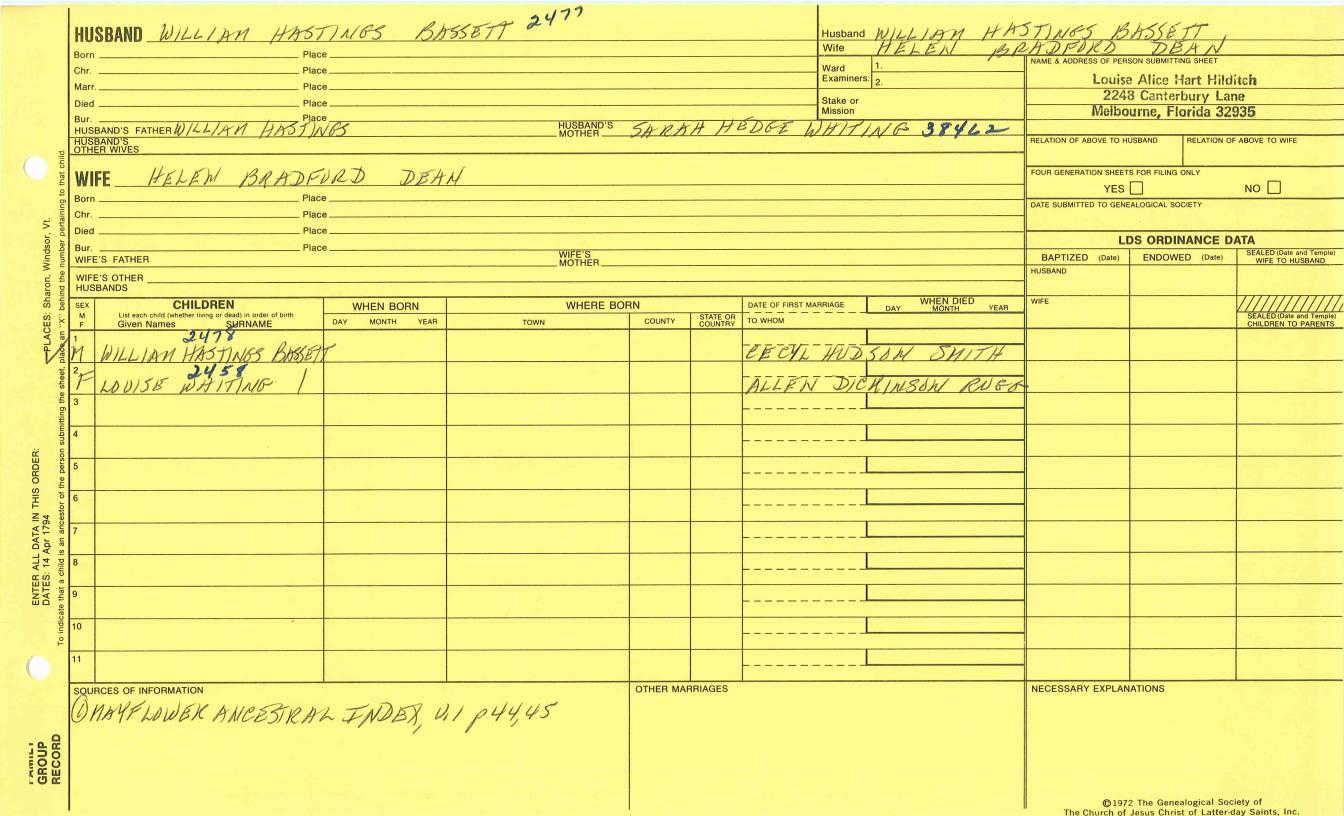 HUSBAND WILLIAM HASTINGS BASSETT 2477
Born Place
Chr. Place
Marr. Place
Died Place
Bur. Place
HUSBAND'S FATHER WILLIAM HASTINGS HUSBAND'S MOTHER SARAH HEDGE WHITING 38462
HUSBAND'S OTHER WIVES
Husband WILLIAM HASTINGS BASSETT
Wife HELEN BRADFORD DEAN
Ward Examiners: 1.
2.
Stake or Mission
NAME & ADDRESS OF PERSON SUBMITTING SHEET
Louise Alice Hart Hilditch
2248 Canterbury Lane
Melbourne, Florida 32935
RELATION OF ABOVE TO HUSBAND RELATION OF ABOVE TO WIFE
FOUR GENERATION SHEETS FOR FILING ONLY
YES NO
DATE SUBMITTED TO GENEALOGICAL SOCIETY
WIFE HELEN BRADFORD DEAN
Born Place
Chr. Place
Died Place
Bur. Place
WIFE'S FATHER WIFE'S MOTHER
WIFE'S OTHER HUSBANDS
LDS ORDINANCE DATA
BAPTIZED (Date) ENDOWED (Date) SEALED (Date and Temple) WIFE TO HUSBAND
HUSBAND
WIFE
SEALED (Date and Temple) CHILDREN TO PARENTS
SEX M F CHILDREN List each child (whether living or dead) in order of birth Given Names SURNAME
WHEN BORN DAY MONTH YEAR
WHERE BORN TOWN COUNTY STATE OR COUNTRY
DATE OF FIRST MARRIAGE TO WHOM
WHEN DIED DAY MONTH YEAR
2478
1 M WILLIAM HASTINGS BASSETT CECYL HUDSON SMITH
2458
2 F LOUISE WHITING | ALLEN DICKINSON RUGG
3
4
5
6
7
8
9
10
11
SOURCES OF INFORMATION
① MAYFLOWER ANCESTRAL INDEX, V.1 p44,45
OTHER MARRIAGES
NECESSARY EXPLANATIONS
©1972 The Genealogical Society of
The Church of Jesus Christ of Latter-day Saints, Inc.
FAMILY GROUP RECORD
ENTER ALL DATA IN THIS ORDER:
DATES: 14 Apr 1794 PLACES: Sharon, Windsor, Vt.
To indicate that a child is an ancestor of the person submitting the sheet, place an "X" behind the number pertaining to that child.